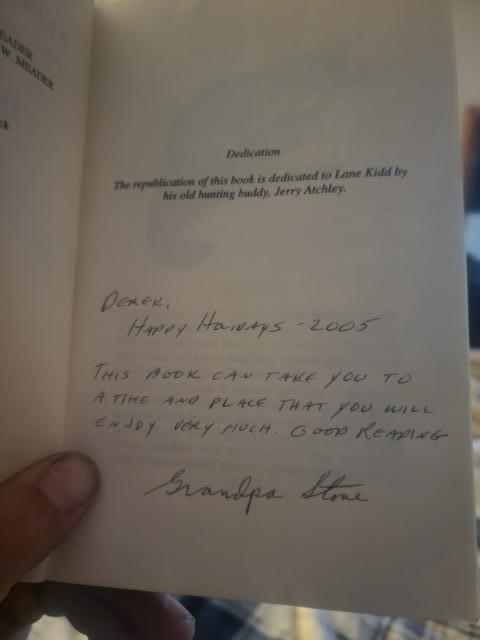 EADER
W. MEADER
ck
Dedication
The republication of this book is dedicated to Lane Kidd by
his old hunting buddy, Jerry Atchley.
DEREK,
HAPPY HOLIDAYS - 2005
THIS BOOK CAN TAKE YOU TO
A TIME AND PLACE THAT YOU WILL
ENJOY VERY MUCH. GOOD READING
Grandpa Stone